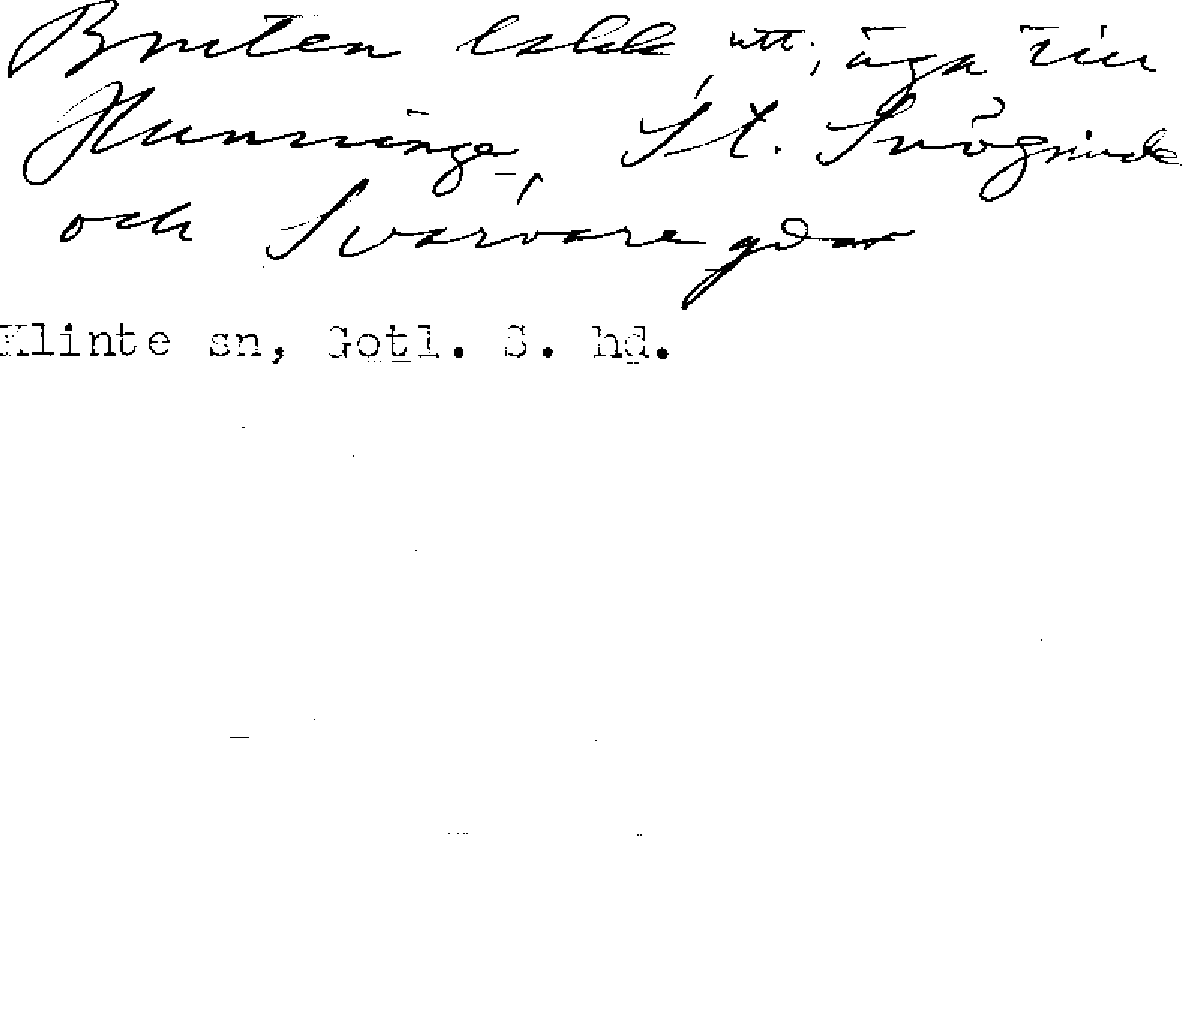 Bruten lokk, utt; äga till
Hunninge, St. Snögrinde
och Svarvare gdar
Klinte sn, Gotl. S. hd.